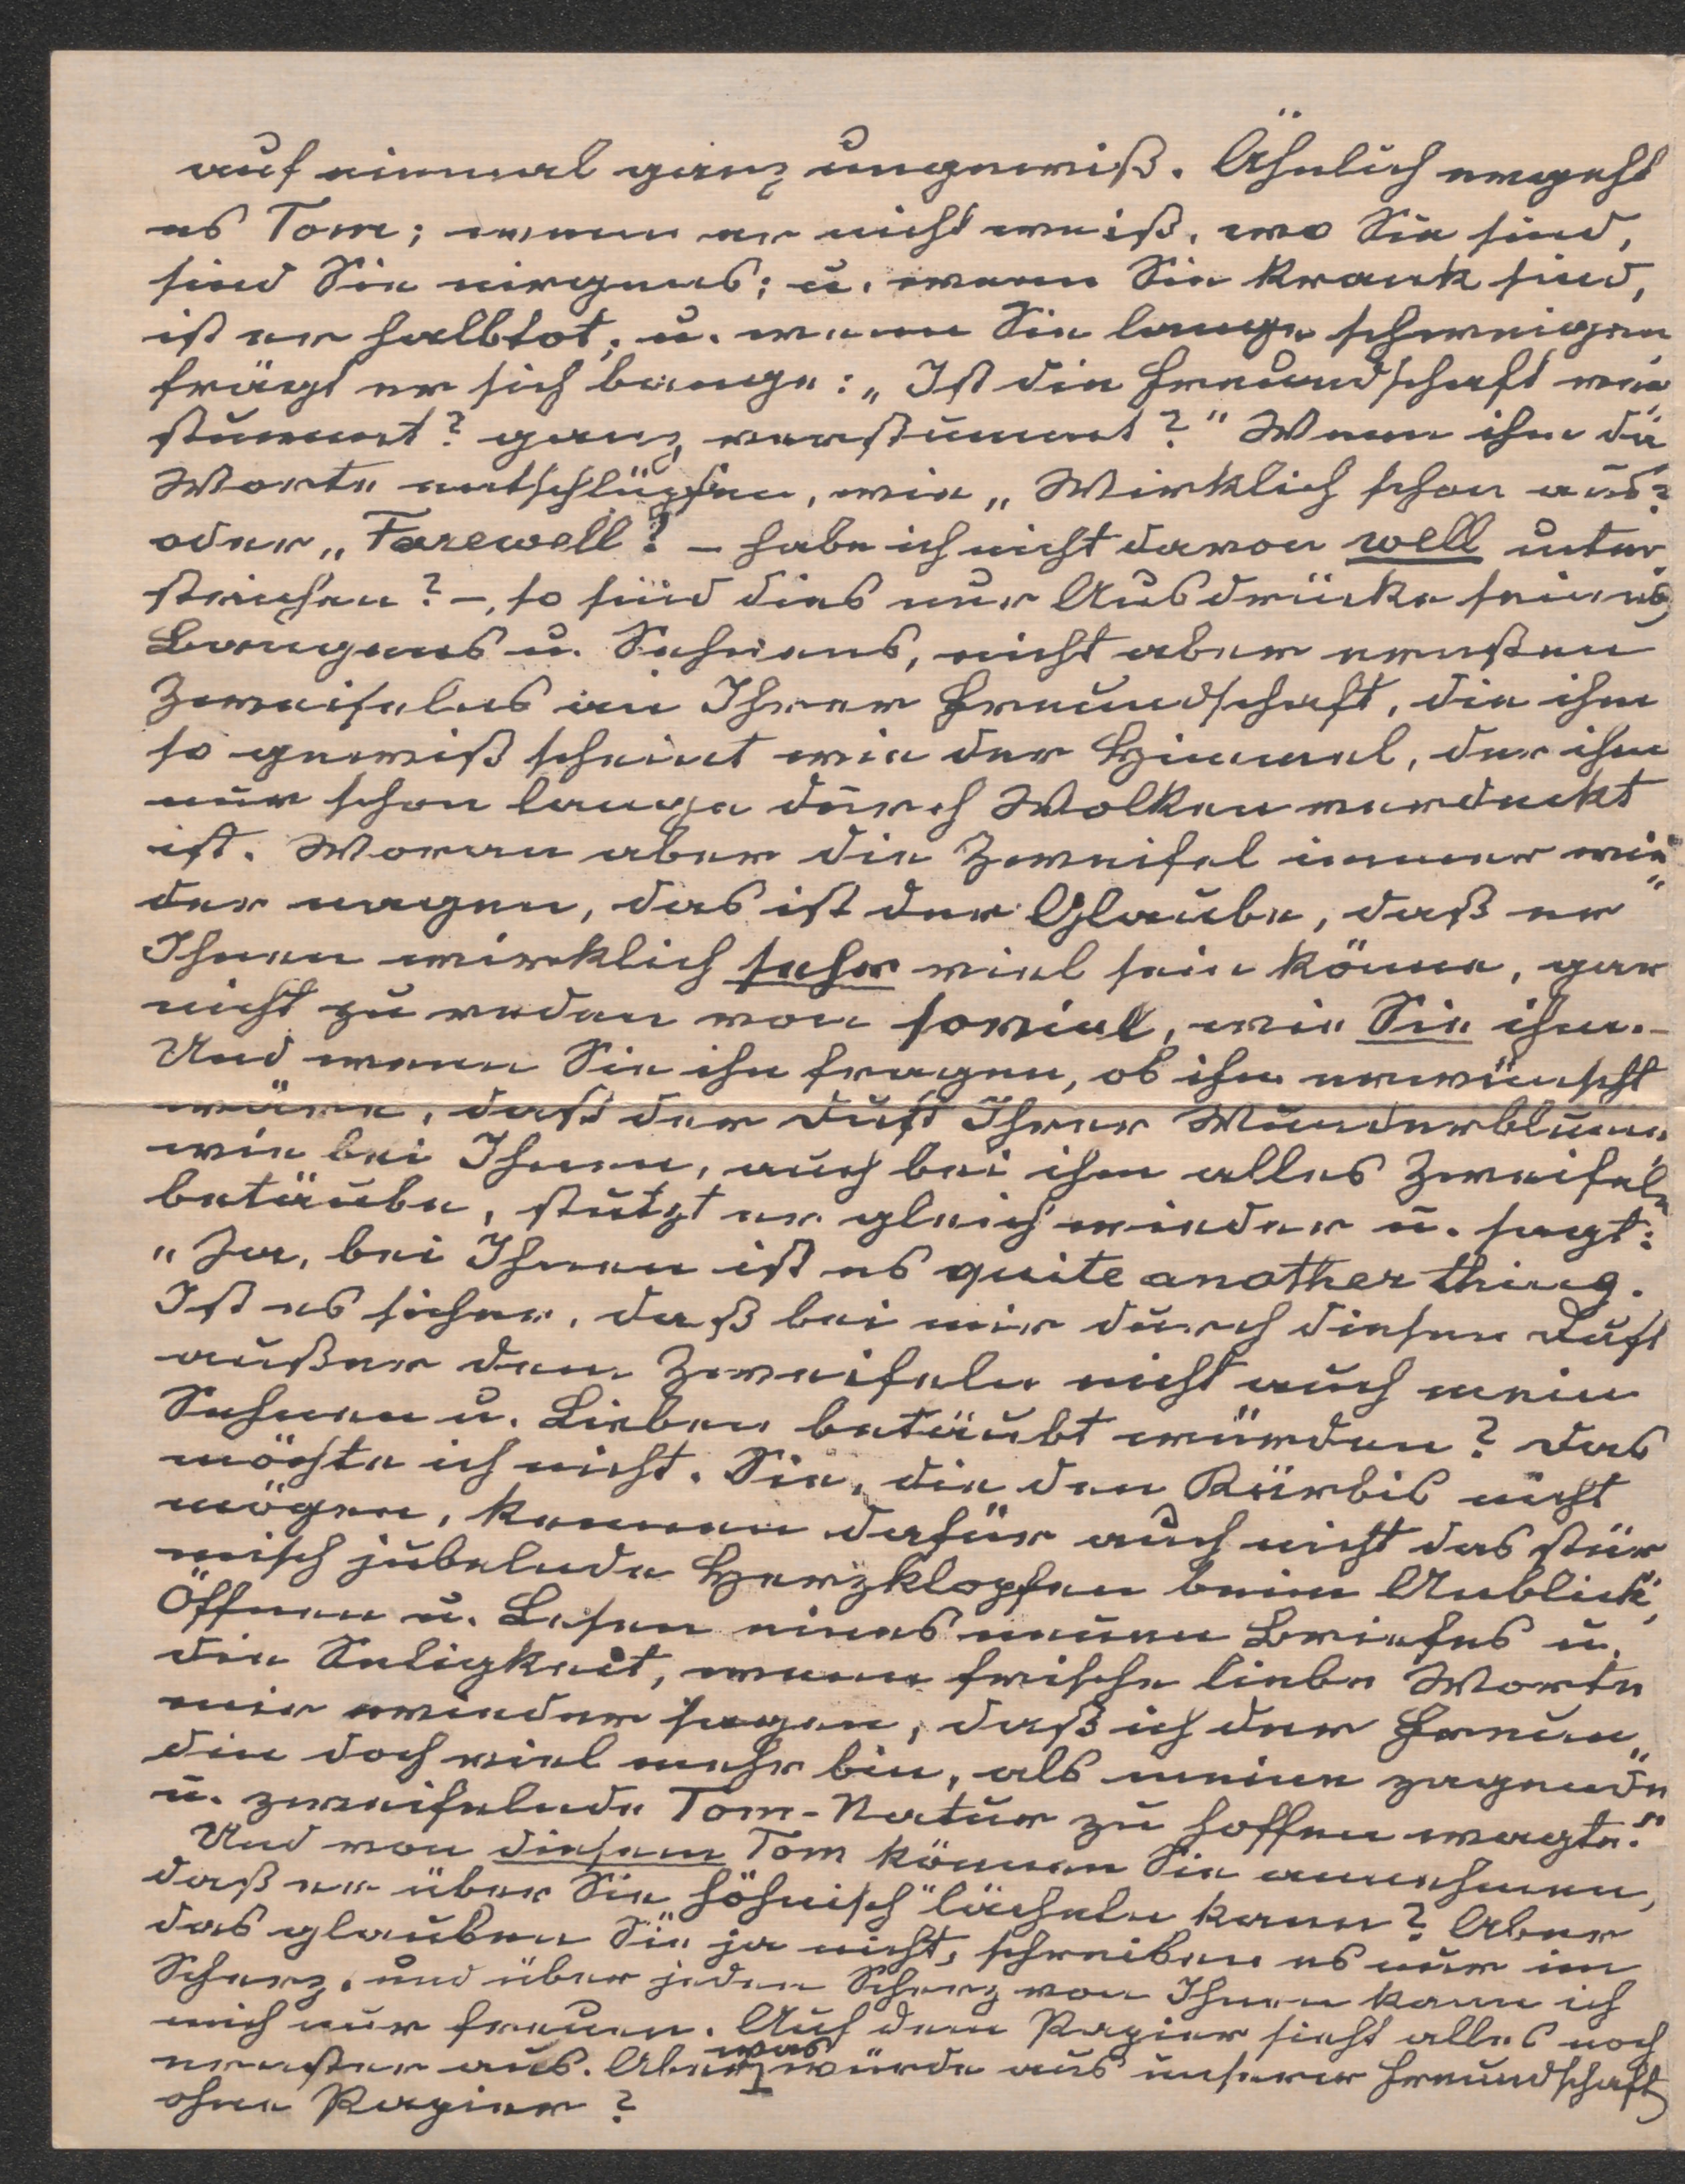 auf einmal ganz ungewiß. Ähnlich ergeht
es Tom; wenn er nicht weiß, wo Sie sind,
sind Sie nirgens; u. wenn Sie krank sind,
ist er halbtot; u. wenn Sie lange schweigen
frägt er sich bange: „Ist die Freundschaft ver„
stummt? ganz verstummt?" Wenn ihm da
Worte entschlüpfen, wie „Wirklich schon aus?
oder „Farewell! – habe ich nicht davon well unter„
strichen? –, so sind dies nur Ausdrücke seines
Bangens u. Sehnens, nicht aber ernsten
Zweifelns an Ihrer Freundschaft, die ihm
so gewiß scheint wie der Himmel, der ihm
nur schon lange durch Wolken verdeckt
ist. Woran aber die Zweifel immer wie„
der nagen, das ist der Glaube, daß er
Ihnen wirklich sehr viel sein könne, gar
nicht zu reden von soviel, wie Sie ihm. –
Und wenn Sie ihn fragen, ob ihm erwünscht
wäre, daß der Duft Ihrer Wunderblume
wie bei Ihnen, auch bei ihm alles Zweifeln
betäube, stutzt er gleich wieder u. sagt:
„Ja, bei Ihnen ist es quite another thing.
Ist es sicher, daß bei mir durch diesen Duft
außer dem Zweifeln nicht auch mein
Sehnen u. Lieben betäubt würden? Das
möchte ich nicht. Sie, die den Kürbis nicht
mögen, kennen dafür auch nicht das stür
misch jubelnde Herzklopfen beim Anblick,
Öffnen u. Lesen eines neuen Briefes u.
die Seligkeit, wenn frische liebe Worte
mir wieder sagen, daß ich der Freun„
din doch viel mehr bin, als meine zagende
u. zweifelnde Tom-Natur zu hoffen wagte."
Und von diesem Tom können Sie annehmen,
daß er über Sie „höhnisch" lächeln kann? Aber
das glauben Sie ja nicht, schreiben es nur im
Scherz, und über jeden Scherz von Ihnen kann ich
mich nur freuen. Auf dem Papier sieht alles noch
ernster aus. Aber was würde aus unserer Freundschaft
ohne Papier?